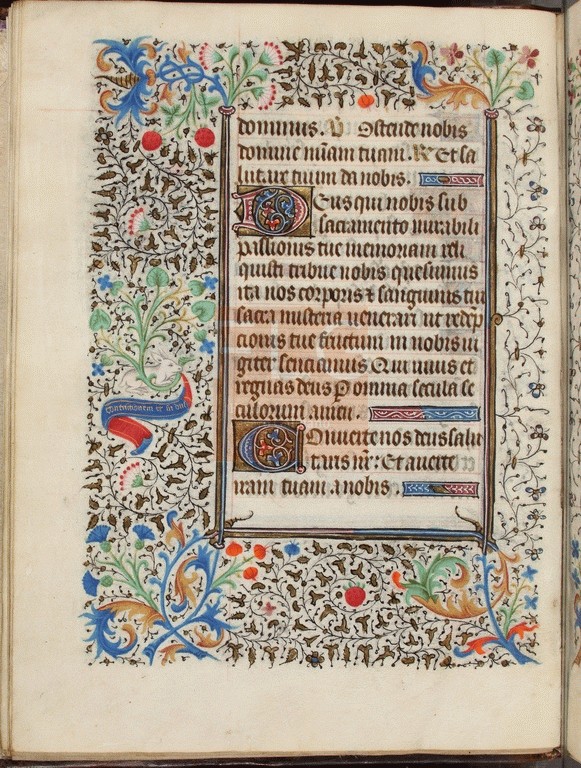 dominus. V Ostende nobis
domine misericordiam tuam. R Et sa
lutare tuum da nobis.
Deus qui nobis sub
sacramento mirabili
passionis tue memoriam reli
quisti tribue nobis quesumus
ita nos corporis & sanguinis tui
sacra misteria venerari ut redēp
cionis tue fructum in nobis iu
giter senciamus. Qui vivis et
regnas deus P omnia secula se
culorum amen.
Converte nos deus salu
taris nr̄: Et averte
iram tuam a nobis.